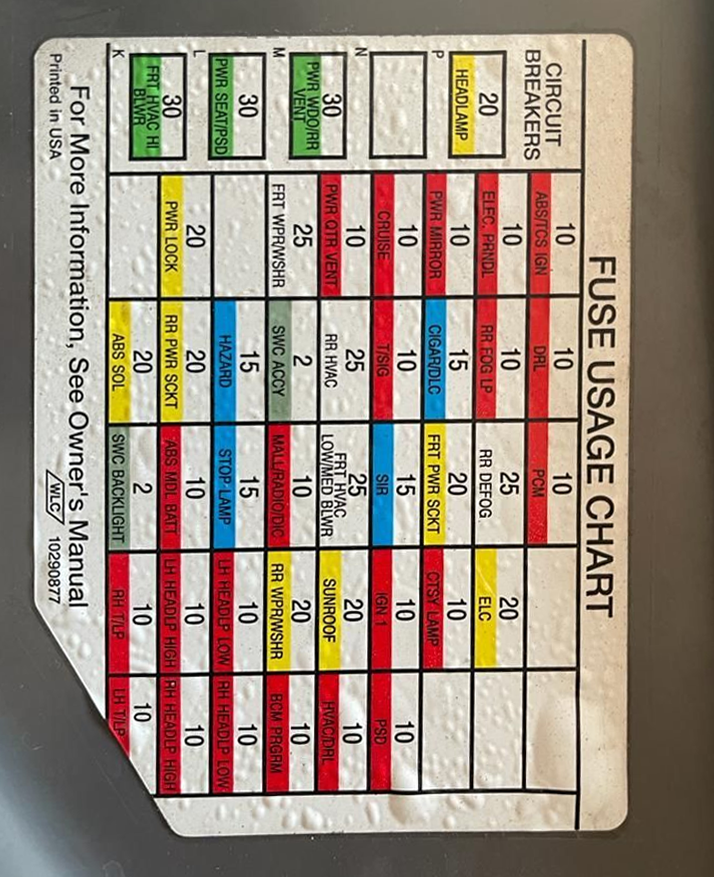 FUSE USAGE CHART
CIRCUIT
BREAKERS
20
HEADLAMP
P
N
30
PWR WDO/RR
VENT
M
30
PWR SEAT/PSD
L
30
FRT HVAC HI
BLWR
K
10 10 10
ABS/TCS IGN DRL PCM
10 10 25 20
ELEC. PRNDL RR FOG LP RR DEFOG ELC
10 15 20 10
PWR MIRROR CIGAR/DLC FRT PWR SCKT CTSY LAMP
10 10 15 10 10
CRUISE T/SIG SIR IGN 1 PSD
10 25 25 20 10
PWR QTR VENT RR HVAC FRT HVAC LOW/MED BLWR SUNROOF HVAC/DRL
25 2 10 20 10
FRT WPR/WSHR SWC ACCY MALL/RADIO/DIC RR WPR/WSHR BCM PRGRM
15 15 10 10
HAZARD STOP LAMP LH HEADLP LOW RH HEADLP LOW
20 20 10 10 10
PWR LOCK RR PWR SCKT ABS MDL BATT LH HEADLP HIGH RH HEADLP HIGH
20 2 10 10
ABS SOL SWC BACKLIGHT RH T/LP LH T/LP
For More Information, See Owner's Manual
Printed in USA WLC 10290877